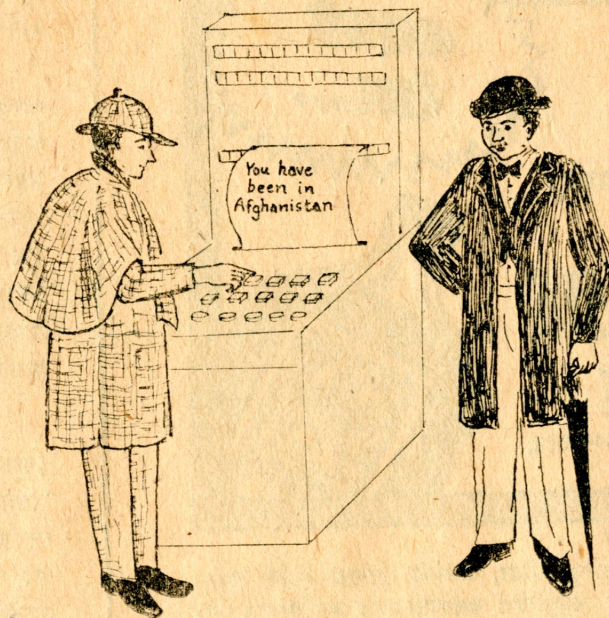 You have
been in
Afghanistan